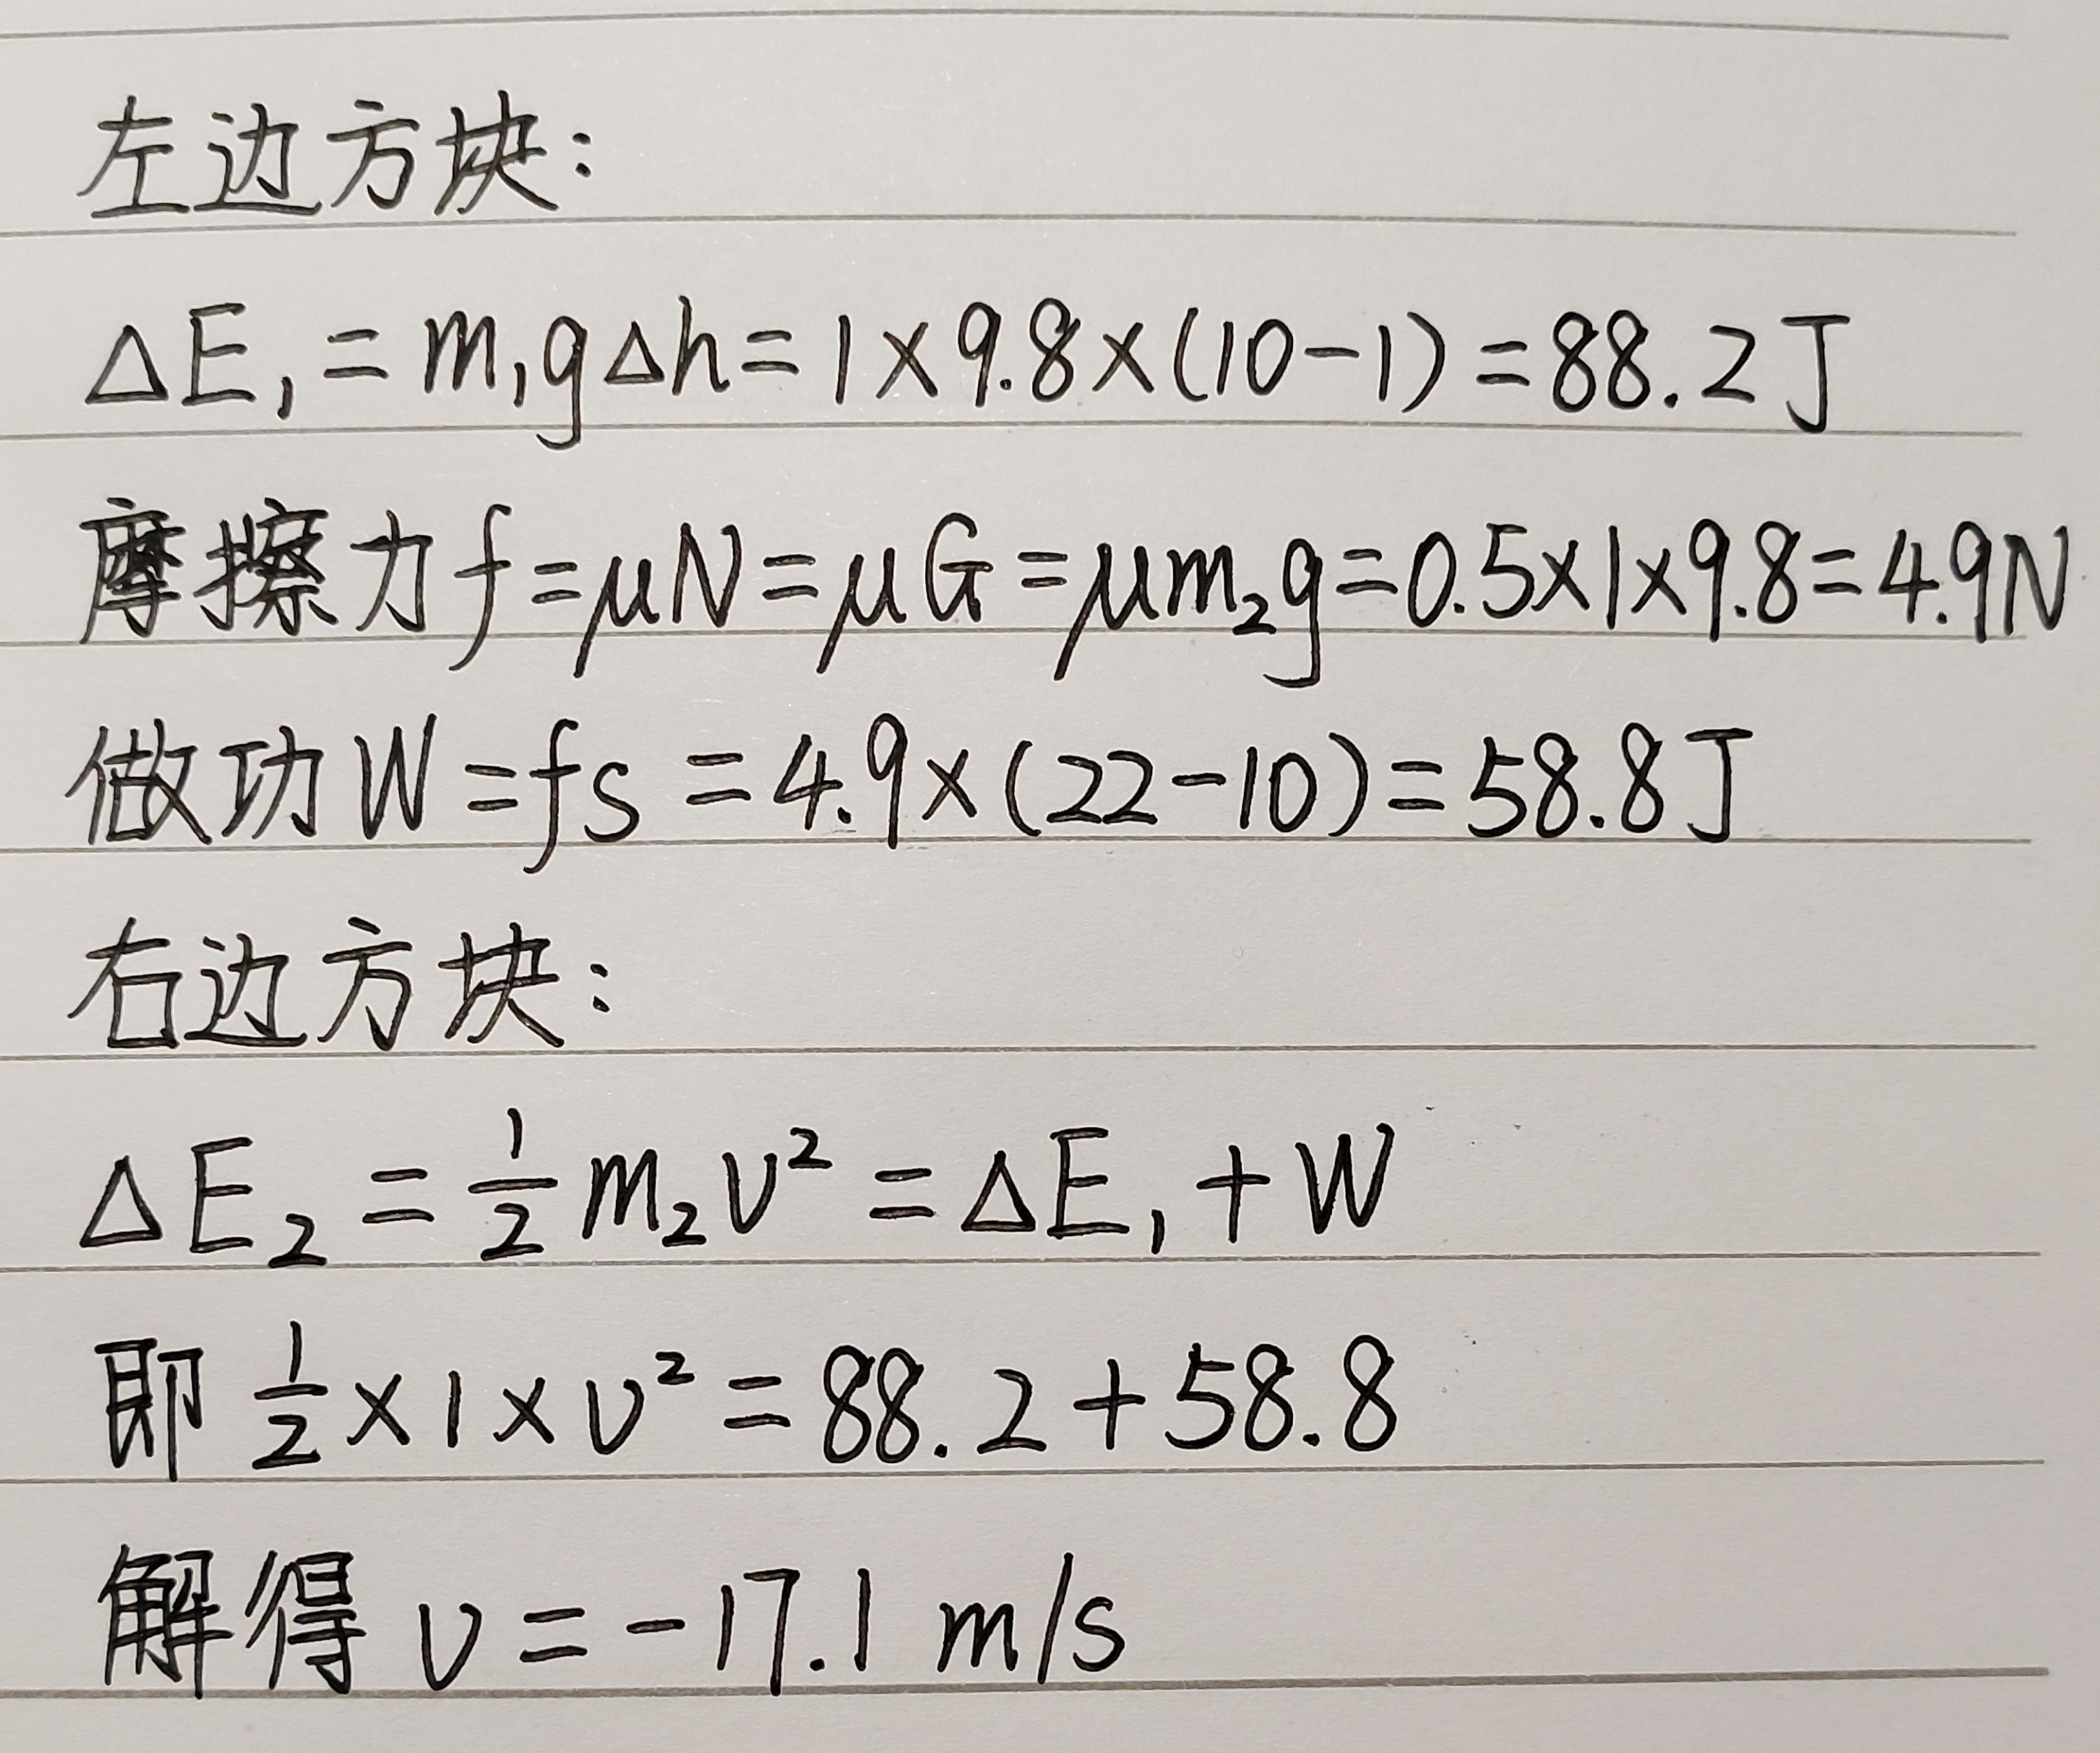 左边方块:
ΔE₁ = m₁gΔh = 1×9.8×(10-1) = 88.2J
摩擦力f=μN=μG=μm₂g=0.5×1×9.8=4.9N
做功W=fs = 4.9×(22-10)=58.8J
右边方块:
ΔE₂ = ½m₂v² = ΔE₁+W
即 ½×1×v² = 88.2+58.8
解得 v = -17.1 m/s